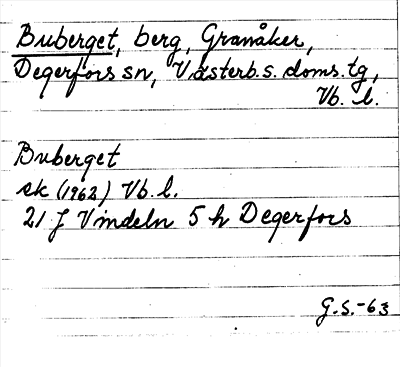 Buberget, berg, Granåker,
Degerfors sn, Västerb.s. doms. tg,
Vb. l.
Buberget
ek (1962) Vb. l.
21 J Vindeln 5 h Degerfors
G.S.-63